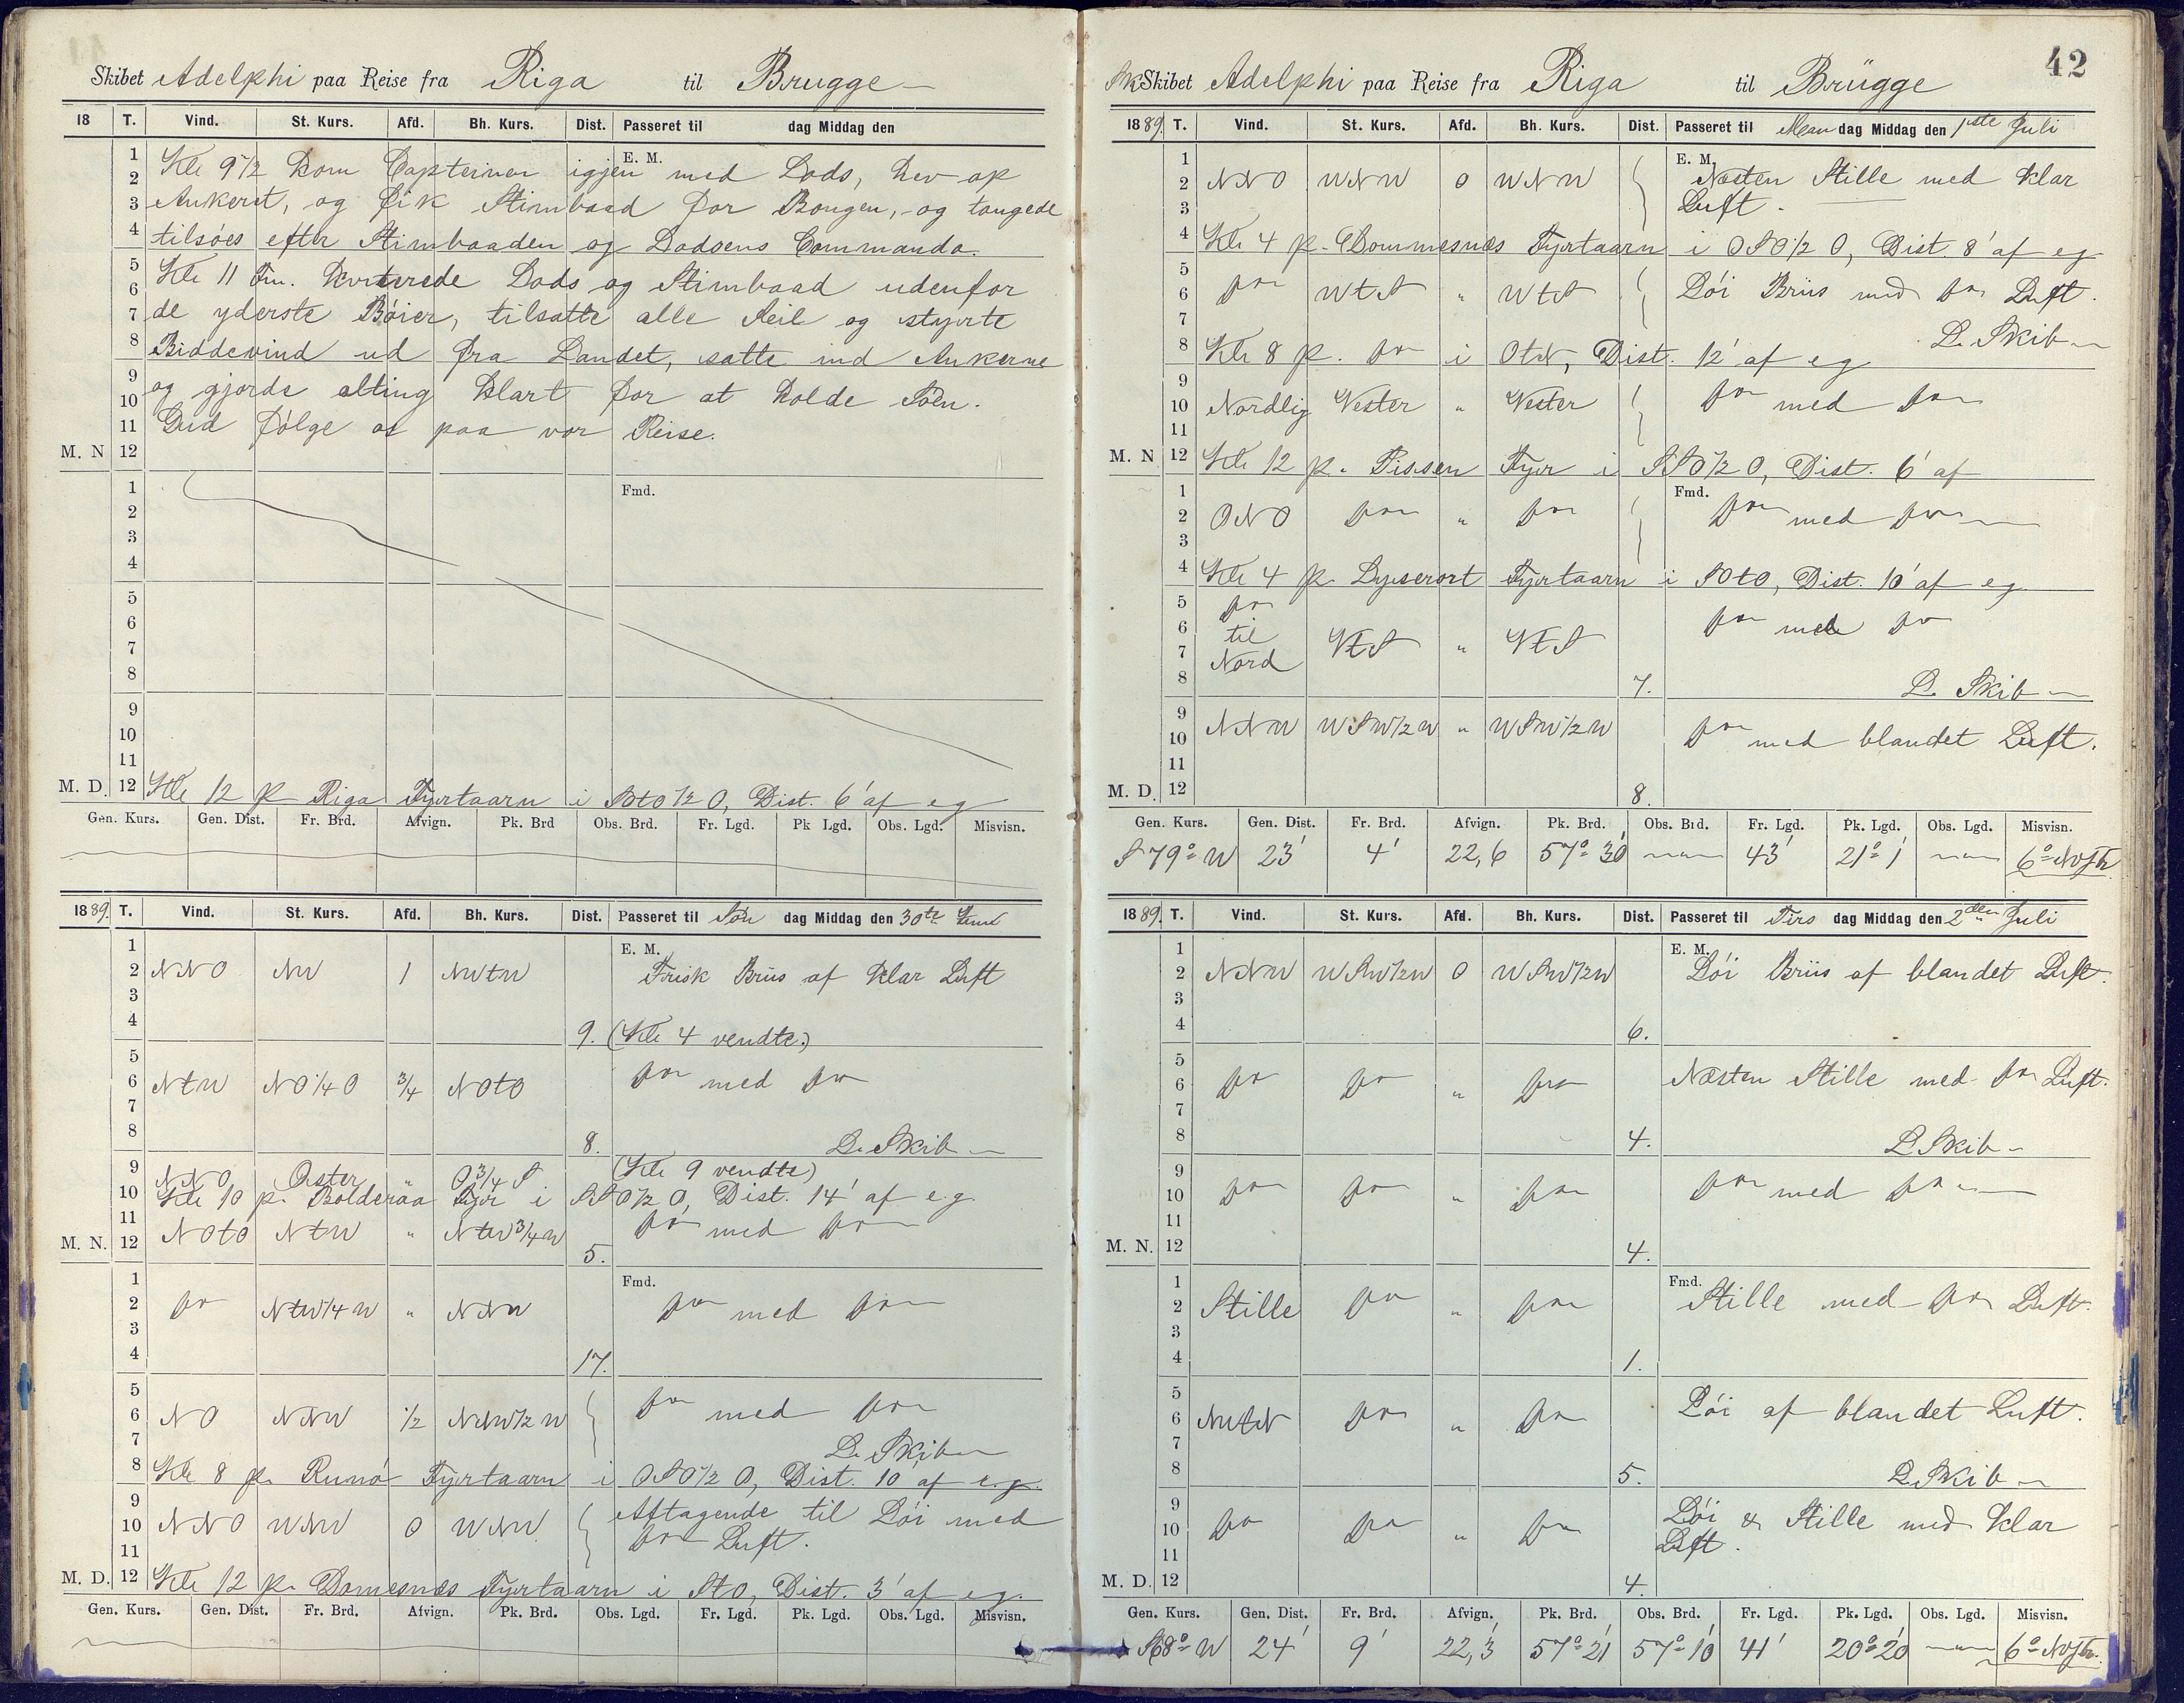 Skibet Adelphi paa Reise fra Riga til Brugge
18 T. Vind. St. Kurs. Afd. Bh. Kurs. Dist. Passeret til dag Middag den
E. M.
1
2 Kle 9 1/2 kom Capteinen igjen med Lods, hev op
3 Ankeret, og fik Stimbaad for Bougen, og tougede
4 tilsóes efter Stimbaaden og Lodsens Commando.
5
6 Kle 11 Fm. kviterede Lods og Stimbaad udenfor
7 de yderste Bóier, tilsatte alle Seil og styrte
8 Biddevind ud fra Landet, satte ind Ankerne
9
10 og gjorde alting klart for at holde Sóen.
11 Gud fólge os paa vor Reise.
M. N 12
1 Fmd.
2
3
4
5
6
7
8
9
10
11
M. D. 12 Kle 12 p. Riga Fyrtaarn i StO 1/2 O, Dist. 6' af eg
Gen. Kurs. Gen. Dist. Fr. Brd. Afvign. Pk. Brd Obs. Brd. Fr. Lgd. Pk Lgd. Obs. Lgd. Misvisn.
1889. T. Vind. St. Kurs. Afd. Bh. Kurs. Dist. Passeret til Són dag Middag den 30te Juni
1 E. M.
2 NNO NW 1 NWtW Frisk Briis af klar Luft
3
4 9. (Kle 4 vendte.)
5
6 NtW NO 1/4 O 3/4 NOtO do med do
7
8 8. L. Skib
9 NNO Oster " O 3/4 S (Kle 9 vendte)
10 Kle 10 p. Bolderaa Fyr i SSO 1/2 O, Dist. 14' af e.g.
11 NOtO NtW " NtW 3/4 W do med do
M. N. 12 5.
1 Fmd.
2 do NtW 1/4 W " NNW do med do
3
4 17.
5
6 NO NNW 1/2 NNW 1/2 W do med do
7 L. Skib
8 Kle 8 p. Runó Fyrtaarn i OSO 1/2 O, Dist. 10' af e.g.
9 Aftagende til Lói med
10 NNO WNW 0 WNW do Luft.
11
M. D. 12 Kle 12 p. Domesnæs Fyrtaarn i StO, Dist. 3' af eg.
Gen. Kurs. Gen. Dist. Fr. Brd. Afvign. Pk. Brd. Obs. Lgd. Fr. Lgd. Pk. Lgd. Obs. Lgd. Misvisn.
42
Skibet Adelphi paa Reise fra Riga til Brügge
1889. T. Vind. St. Kurs. Afd. Bh. Kurs. Dist. Passeret til Man dag Middag den 1ste Juli
1 E. M.
2 NNO WNW 0 WNW Næsten Stille med klar
3 Luft.
4 Kle 4 p. Dommesnæs Fyrtaarn i OSO 1/2 O, Dist. 8' af eg
5
6 do WtS " WtS Lói Briis med do Luft.
7 L. Skib
8 Kle 8 p. do i OtN, Dist. 12' af eg
9
10 Nordlig Vester " Vester do med do
11
M. N 12 Kle 12 p. Pissen Fyr i SSO 1/2 O, Dist. 6' af
1 Fmd.
2 ONO do " do do med do
3
4 Kle 4 p. Lyserort Fyrtaarn i SOtO, Dist. 10' af eg
5 do
6 til VtS " VtS do med do
7 Nord
8 7. L. Skib
9
10 NNW WSW 1/2 W " WSW 1/2 W do med blandet Luft.
11
M. D. 12 8.
Gen. Kurs. Gen. Dist. Fr. Brd. Afvign. Pk. Brd. Obs. Brd. Fr. Lgd. Pk. Lgd. Obs. Lgd. Misvisn.
S 79° W 23' 4' 22,6 57° 30' 43' 21° 1' 6° NVstr.
1889. T. Vind. St. Kurs. Afd. Bh. Kurs. Dist. Passeret til Tirs dag Middag den 2den Juli
1 E. M.
2 NNW WSW 1/2 W 0 WSW 1/2 W Lói Briis af blandet Luft.
3
4 6.
5
6 do do " do Næsten Stille med do Luft.
7
8 4. L. Skib
9
10 do do " do do med do
11
M. N. 12 4.
1 Fmd.
2 Stille do " do Stille med do Luft.
3
4 1.
5
6 NWtN do " do Lói af blandet Luft.
7
8 5. L. Skib
9
10 do do " do Lói & Stille med klar
11 Luft.
M. D. 12 4.
Gen. Kurs. Gen. Dist. Fr. Brd. Afvign. Pk. Brd. Obs. Brd. Fr. Lgd. Pk. Lgd. Obs. Lgd. Misvisn.
S 68° W 24' 9' 22,3 57° 21' 57° 10' 41' 20° 20' 6° NVstr.